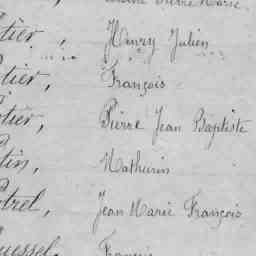 Pierre Marie
tier, Henry Julien
tier, François
tier, Pierre Jean Baptiste
tin, Mathurin
trel, Jean Marie François
uessel, François